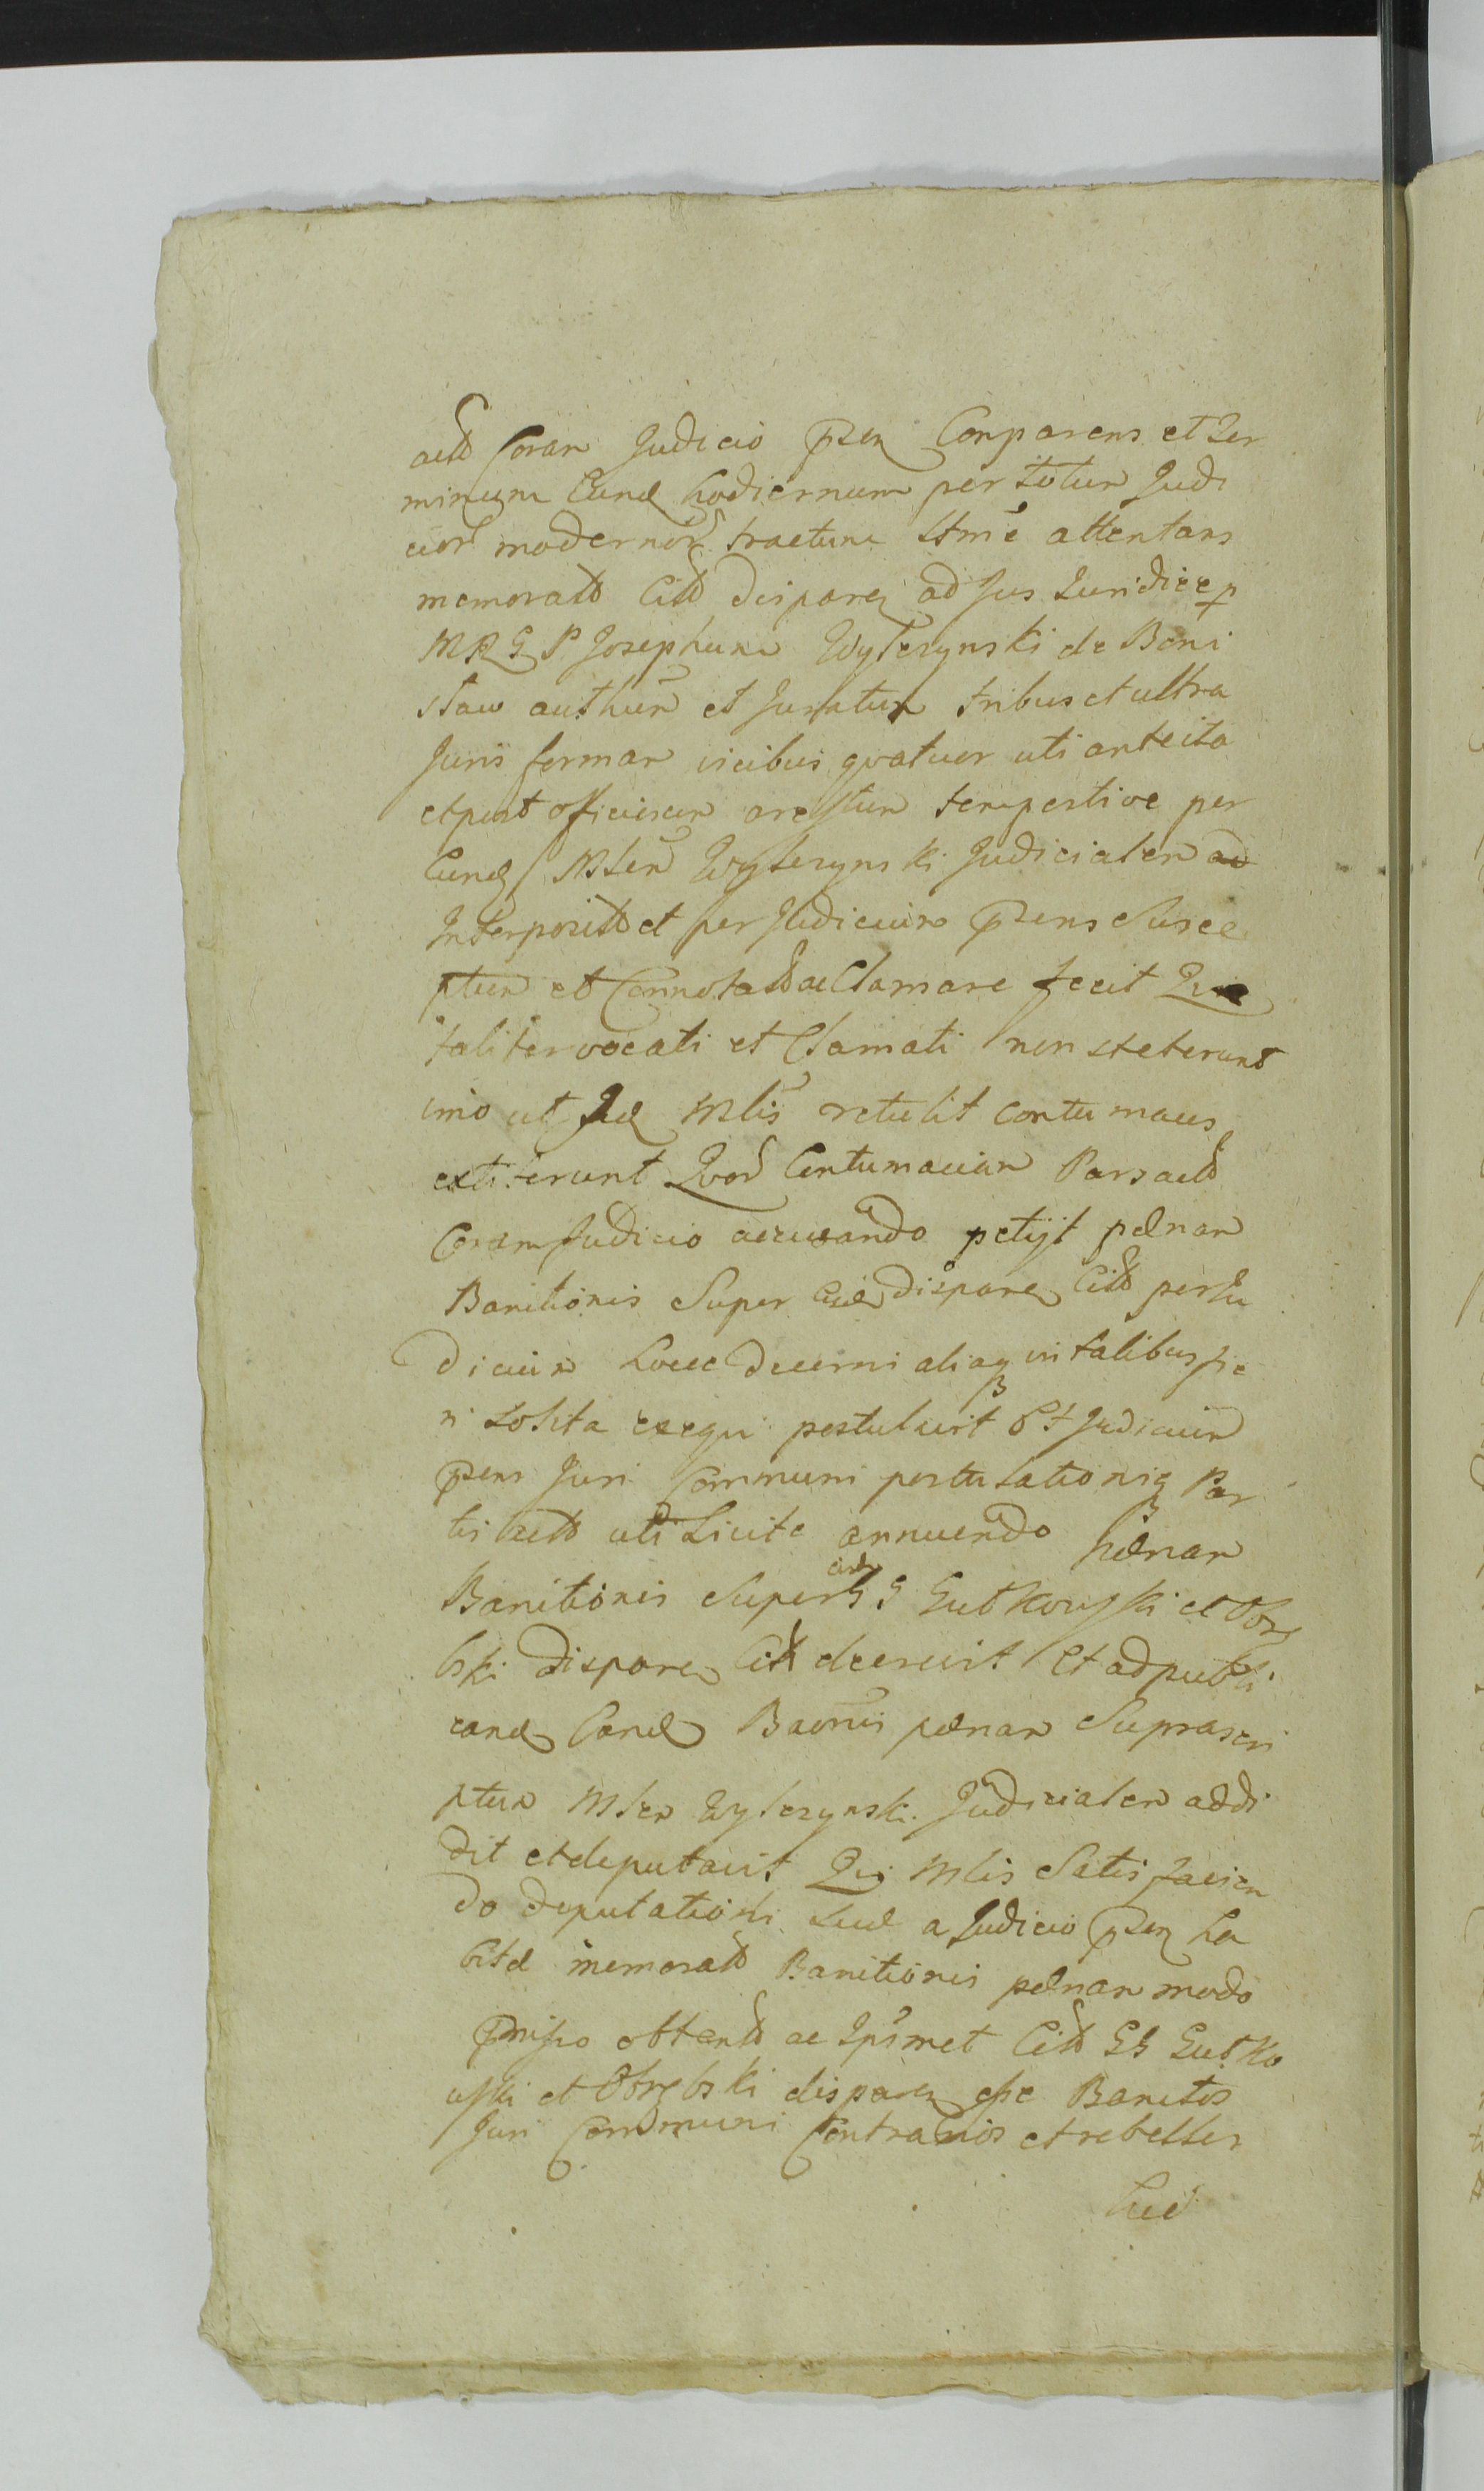 actt Coram Judicio psen Comparens et Ter
minum Eund hodiernum per totum Judi
cior modernor tractum Ltmē attentans
memoratt Citt disparen ad Jus Juridice p
M R G P Josephum Wylezynski de Boni
staw authum et Juratum tribus et ultra
Juris formam vicibus quatuor uti antecita
et post officiosum arestum tempestive per
Eund Mlem Wylezynski Judicialem
Interposit et per Judicium psens Susce
ptum et Connotatt acclamare fecit Qui
taliter vocati et Clamati non steterunt
imo ut Id Mlis retulit contumaces
extiterunt Quor Contumaciam Pars actt
Coram Judicio accusando petijt pænam
Banitionis Super disparen Citt per Ju
dicium hocce decerni aliaq in talibus fie
ri solita exequi postulavit Et Judicium
psens Juri Communi postulationiq Par
tis actt uti Licite annuendo pænam
Banitionis Super G G Gutkowski et Obrę
bski disparen Citt decrevit Et ad publi
cand Eand Baonis pænam Suprascri
ptum Mlem Wylezynski Judicialem addi
dit et deputavit Qui Mlis Satisfacien
do deputationi suæ a Judicio psen ha
bitæ memoratt Banitionis pænam modo
pmisso obtent ac Ipsmet Citt GG Gutko
wski et Obrębski disparen esse Banitos
Juri Communi Contrarios et rebelles